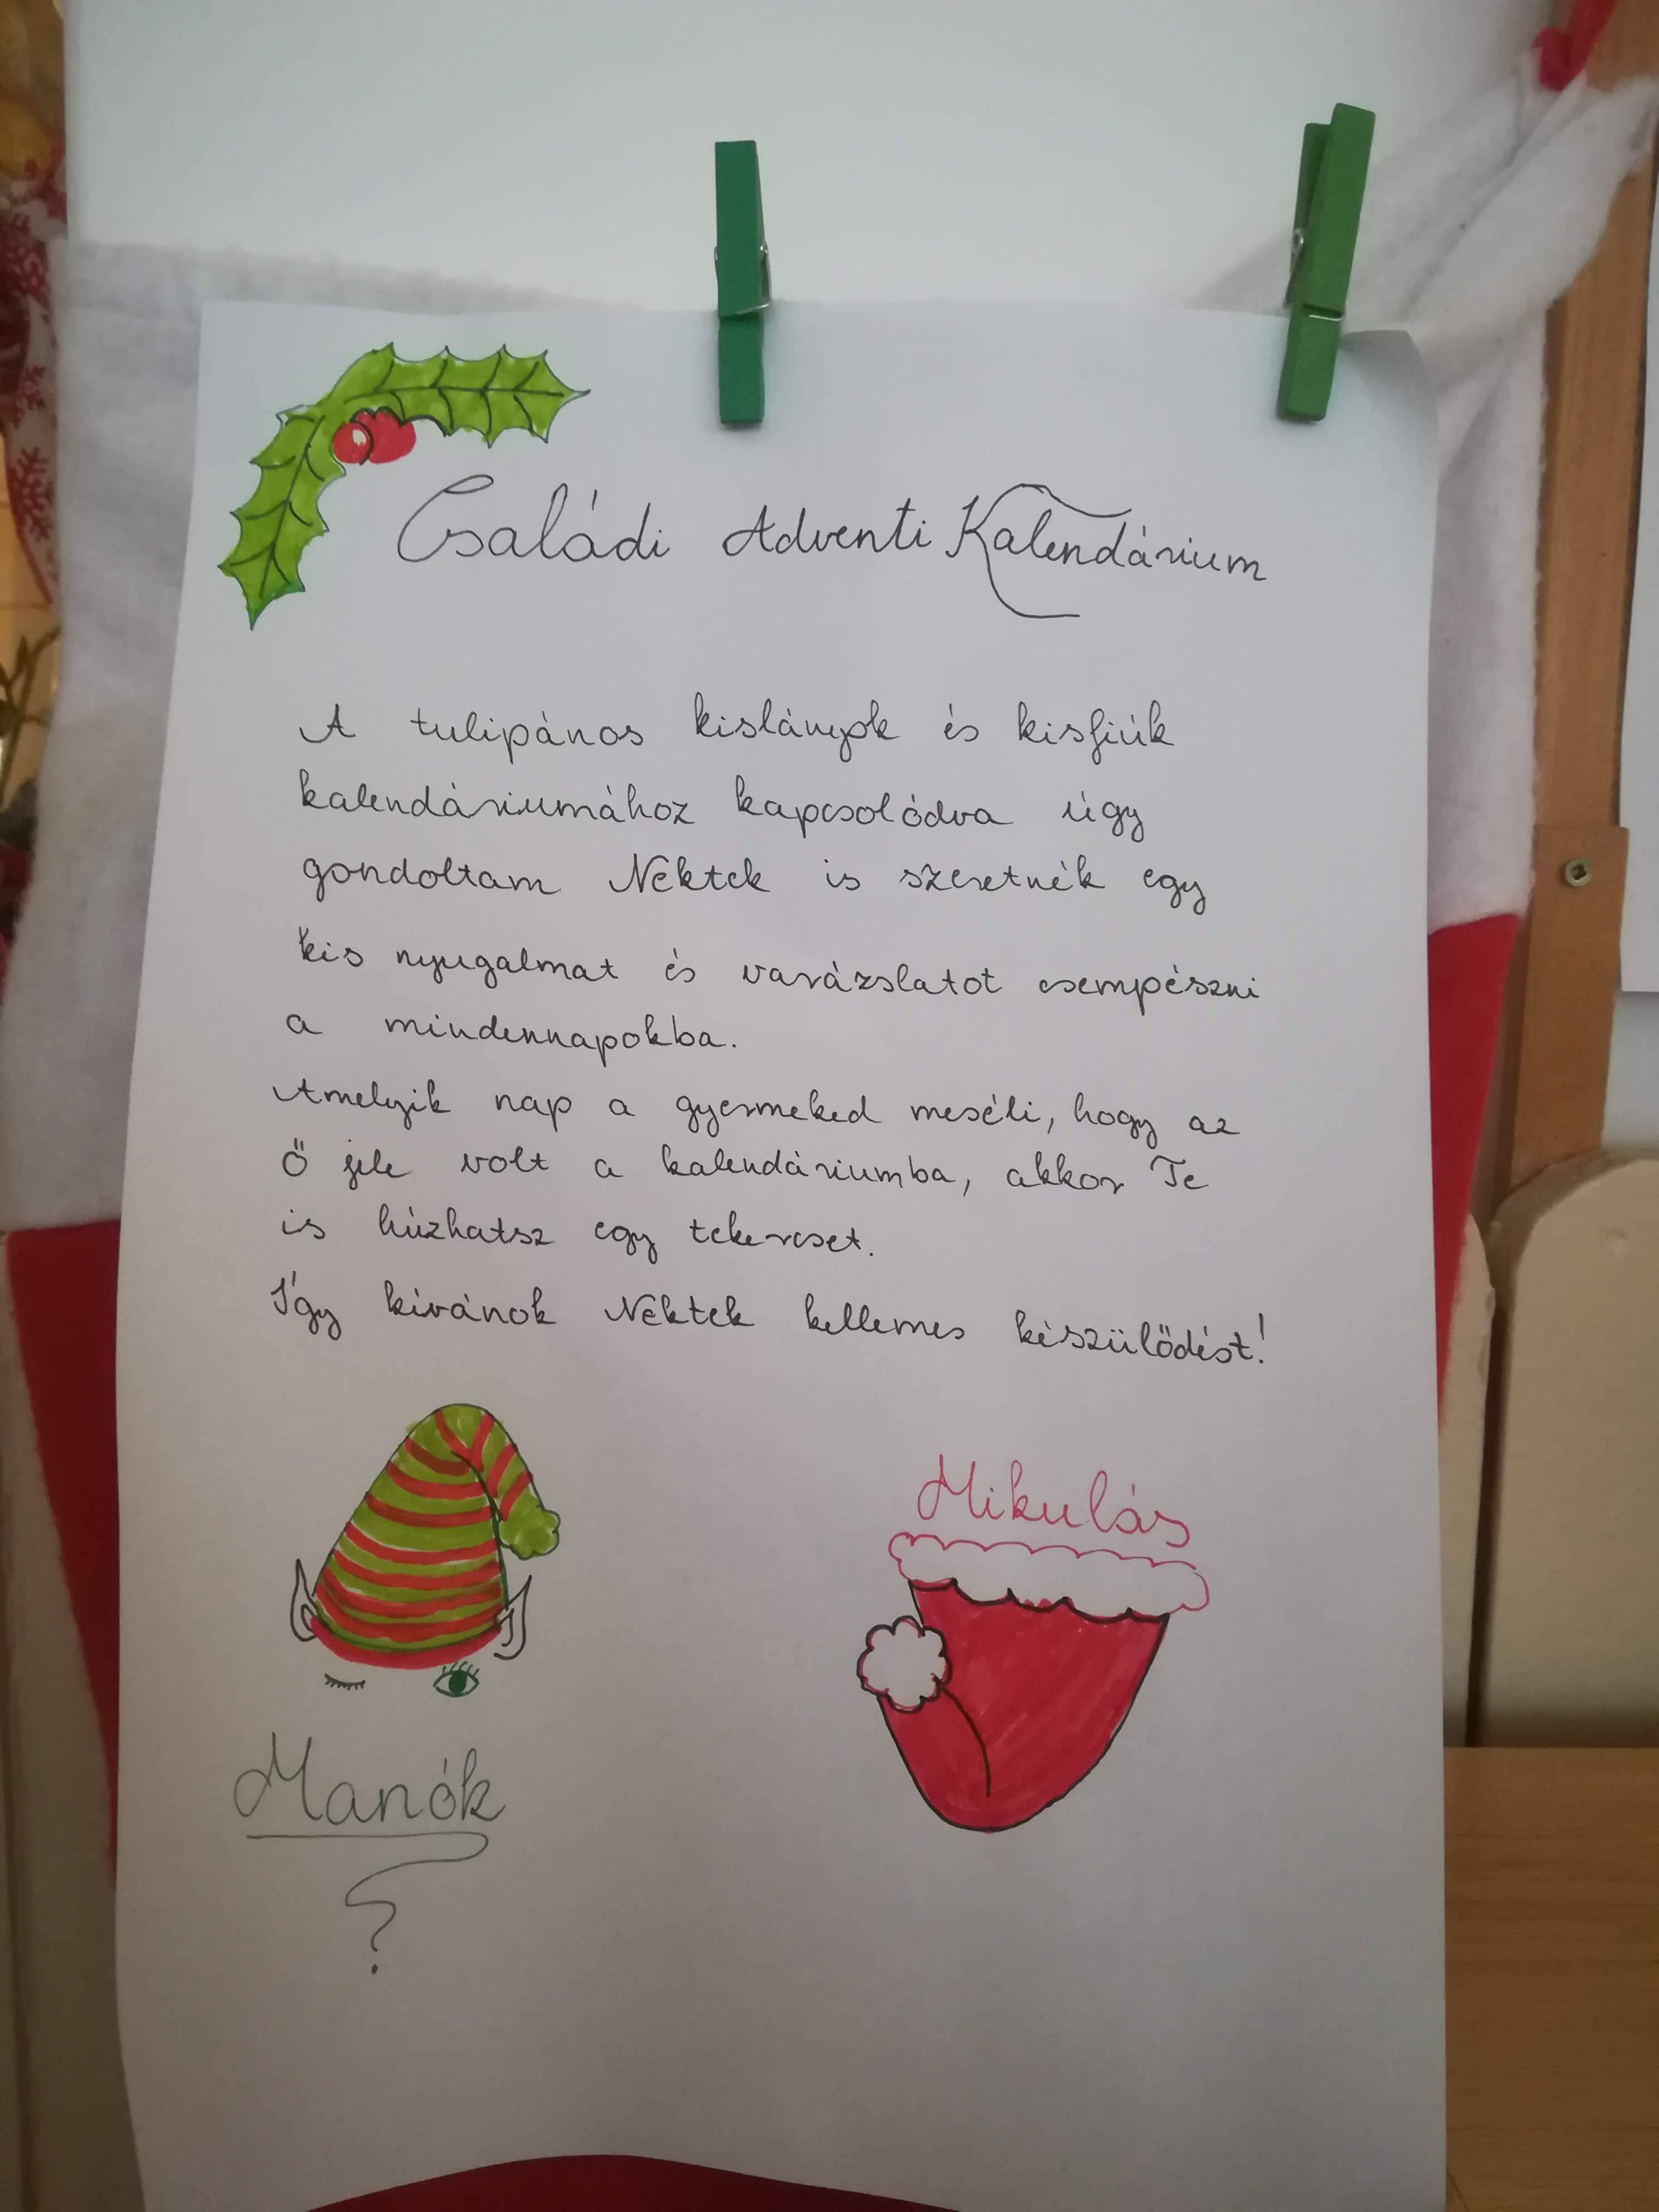 Családi Adventi Kalendárium
A tulipános kislányok és kisfiúk
kalendáriumához kapcsolódva úgy
gondoltam Nektek is szeretnék egy
kis nyugalmat és varázslatot csempészni
a mindennapokba.
Amelyik nap a gyermeked meséli, hogy az
Ő jele volt a kalendáriumba, akkor Te
is húzhatsz egy tekercset.
Így kívánok Nektek kellemes készülődést!
Mikulás
Manók
?